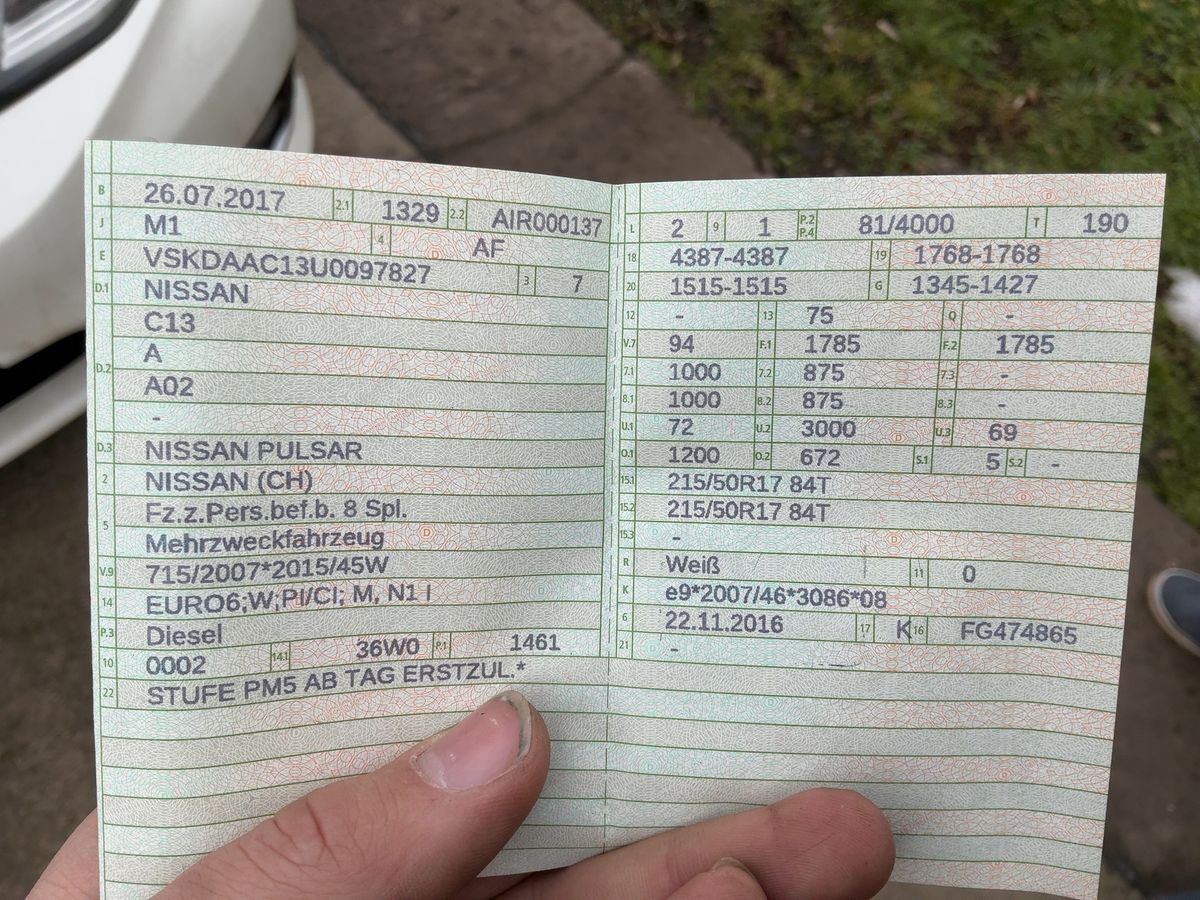 B 26.07.2017 2.1 1329 2.2 AIR000137
J M1 4 AF
E VSKDAAC13U0097827 3 7
D.1 NISSAN
C13
D.2 A
A02
-
D.3 NISSAN PULSAR
2 NISSAN (CH)
5 Fz.z.Pers.bef.b. 8 Spl.
Mehrzweckfahrzeug
V.9 715/2007*2015/45W
14 EURO6;W;PI/CI; M, N1 I
P.3 Diesel
10 0002 14.1 36W0 P.1 1461
22 STUFE PM5 AB TAG ERSTZUL.*
L 2 9 1 P.2 P.4 81/4000 T 190
18 4387-4387 19 1768-1768
20 1515-1515 G 1345-1427
12 - 13 75 Q -
V.7 94 F.1 1785 F.2 1785
7.1 1000 7.2 875 7.3 -
8.1 1000 8.2 875 8.3 -
U.1 72 U.2 3000 U.3 69
O.1 1200 O.2 672 S.1 5 S.2 -
15.1 215/50R17 84T
15.2 215/50R17 84T
15.3 -
R Weiß 11 0
K e9*2007/46*3086*08
6 22.11.2016 17 K 16 FG474865
21 -